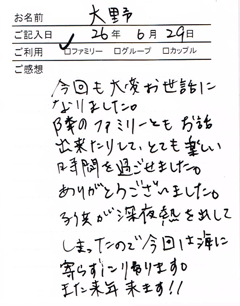 お名前 大野
ご記入日 26年 6月 29日
ご利用 ✓□ファミリー □グループ □カップル
ご感想
今回も大変お世話に
なりました。
隣のファミリーともお話
出来たりして、とても楽しい
時間を過ごせました。
ありがとうございました。
子供が深夜熱を出して
しまったので今回は海に
寄らずに帰ります。
また来年来ます!!